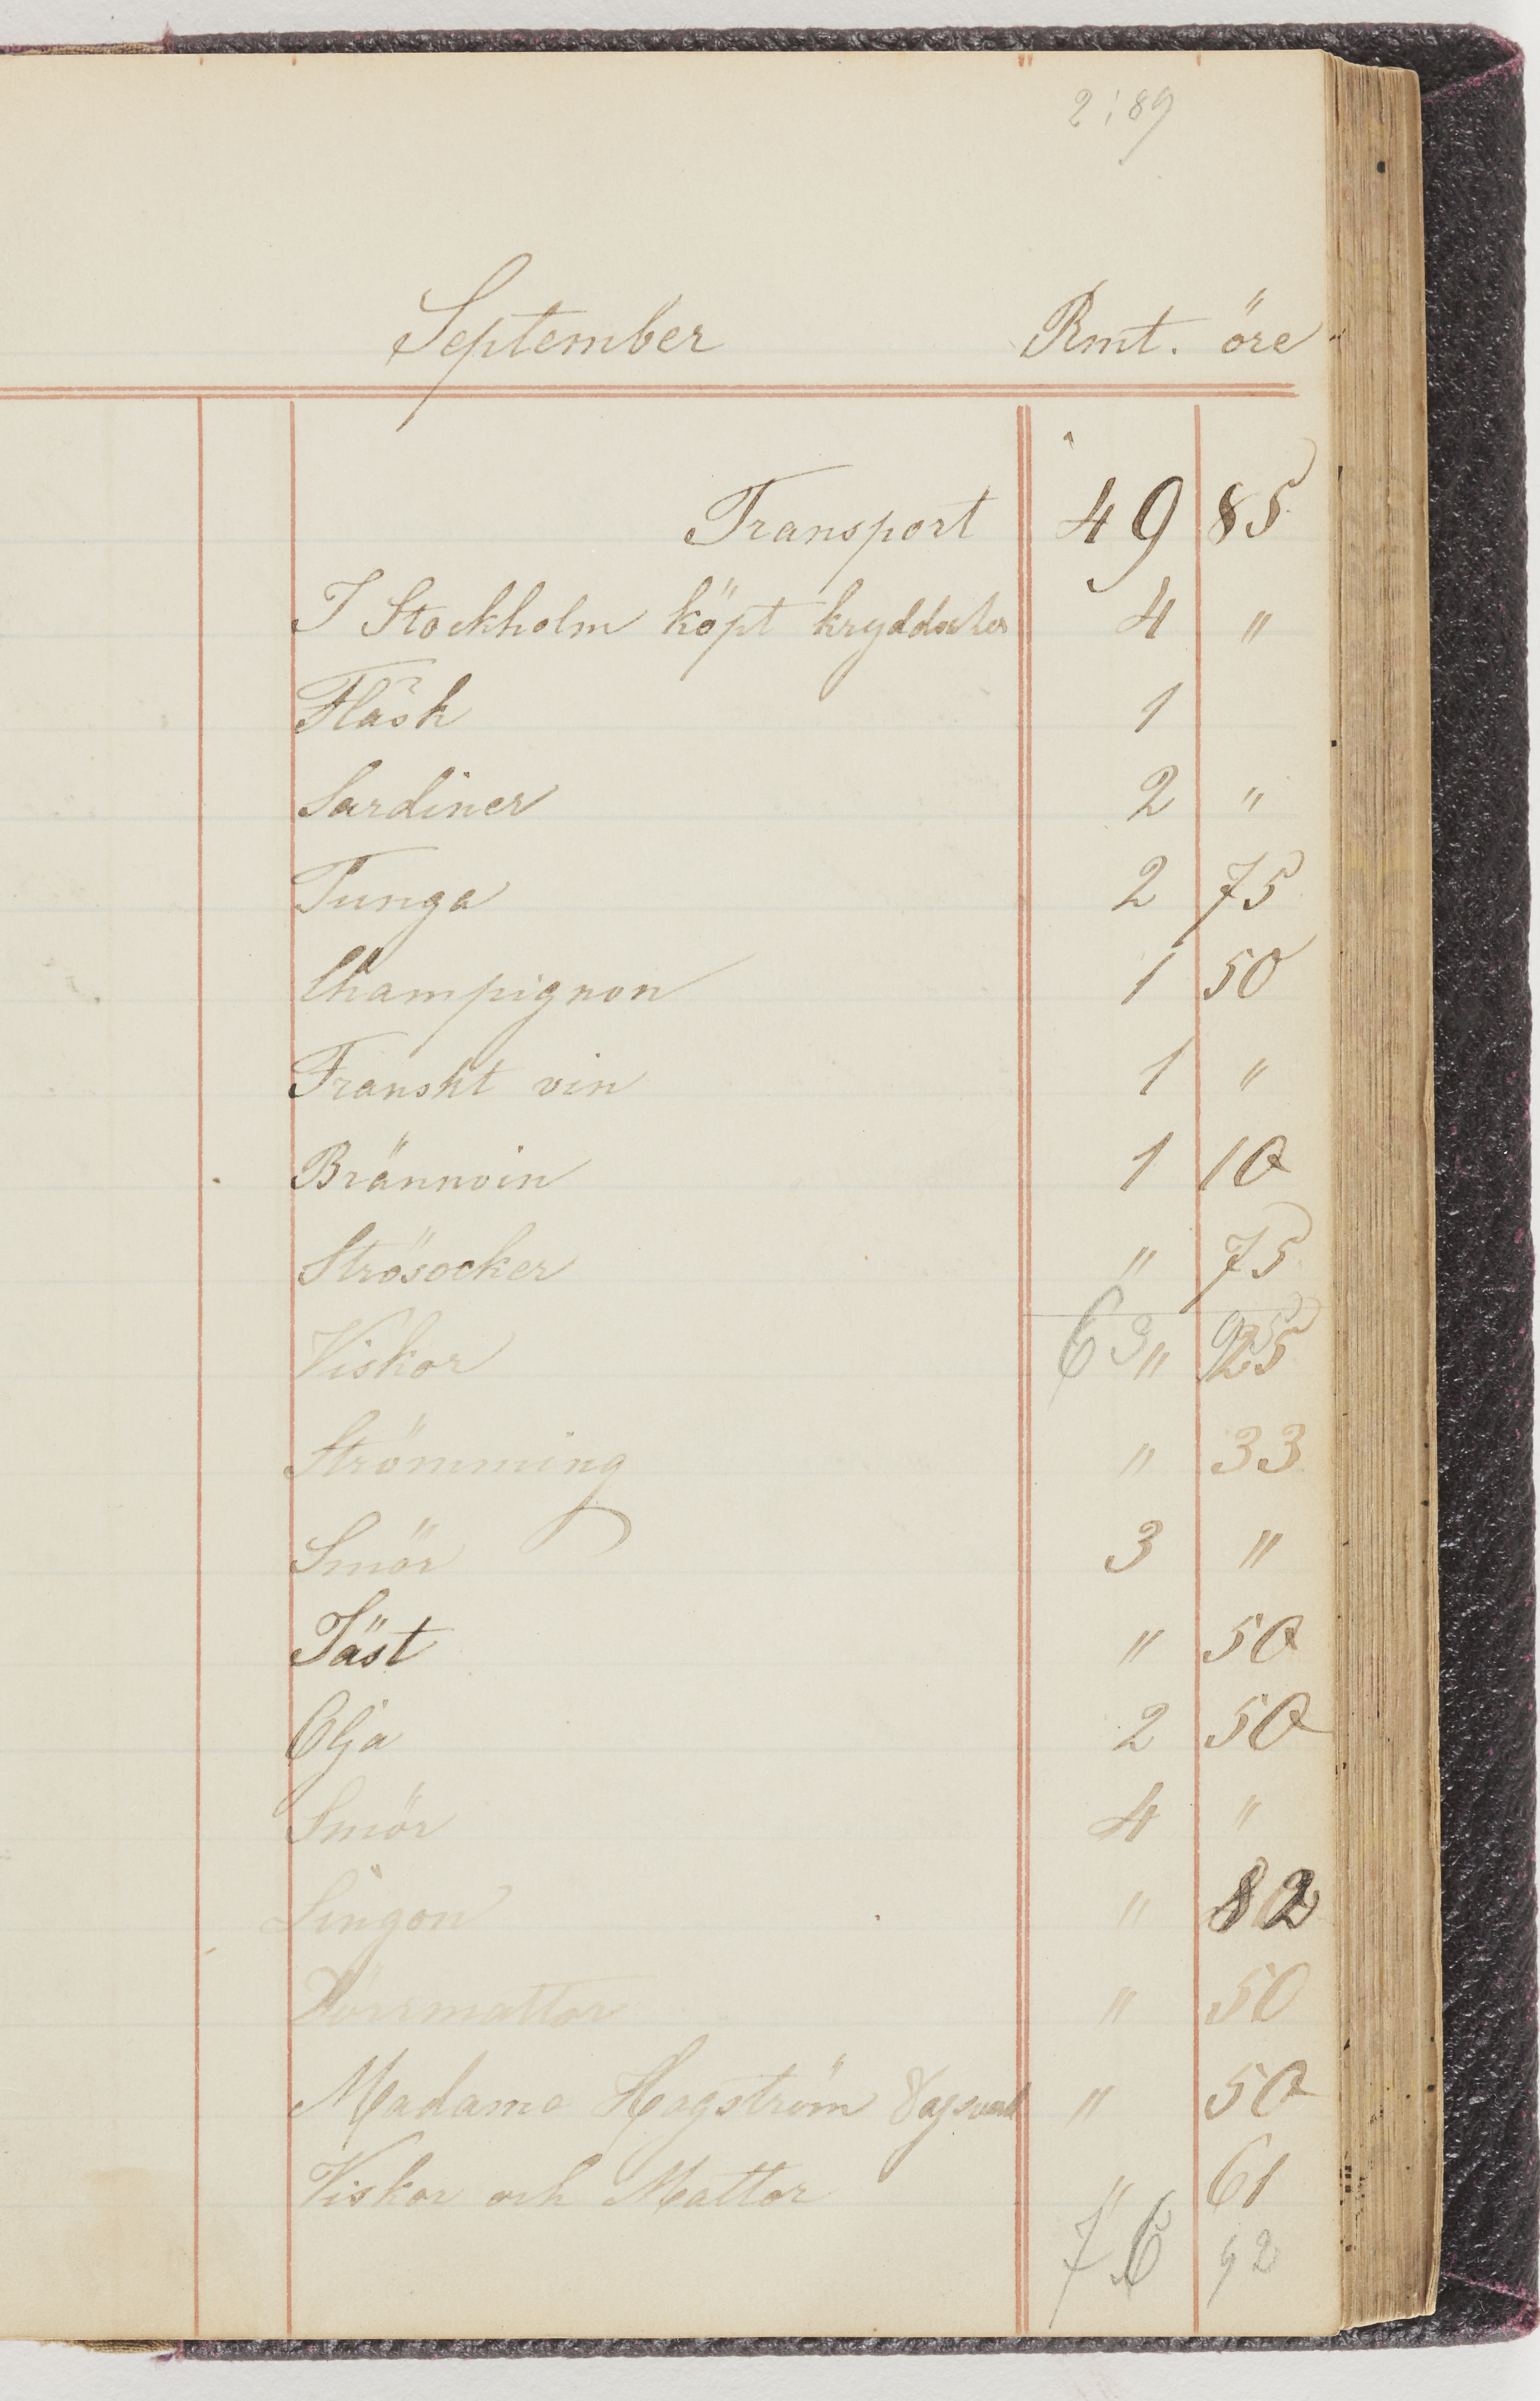 2:89
September Rmt. öre
Transport 49 85
I Stockholm köpt 4 "
Fläsk 1
Sardiner 2 "
Tunga 2 75
Champignon 1 50
Franskt vin 1 "
Brännvin 1 10
Strösocker " 75
63 95
Viskor " 25
Strömming " 33
Smör 3 "
Jäst " 50
Olja 2 50
Smör 4 "
Lingon " 82
Dörrmattor " 50
Madame Hagström " 50
Viskor och Mattor " 61
76 92